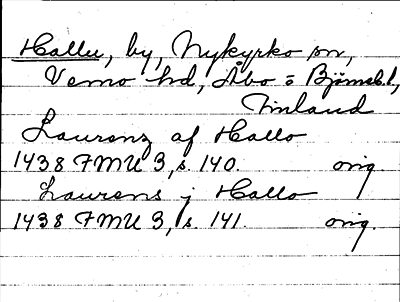 Hallu, by, Nykyrko sn,
Vemo hd, Åbo o Björneb. l,
Finland
Laurenz af Hallo
1438 FMU 3, s. 140. orig.
Laurens j Hallo
1438 FMU 3, s. 141. orig.